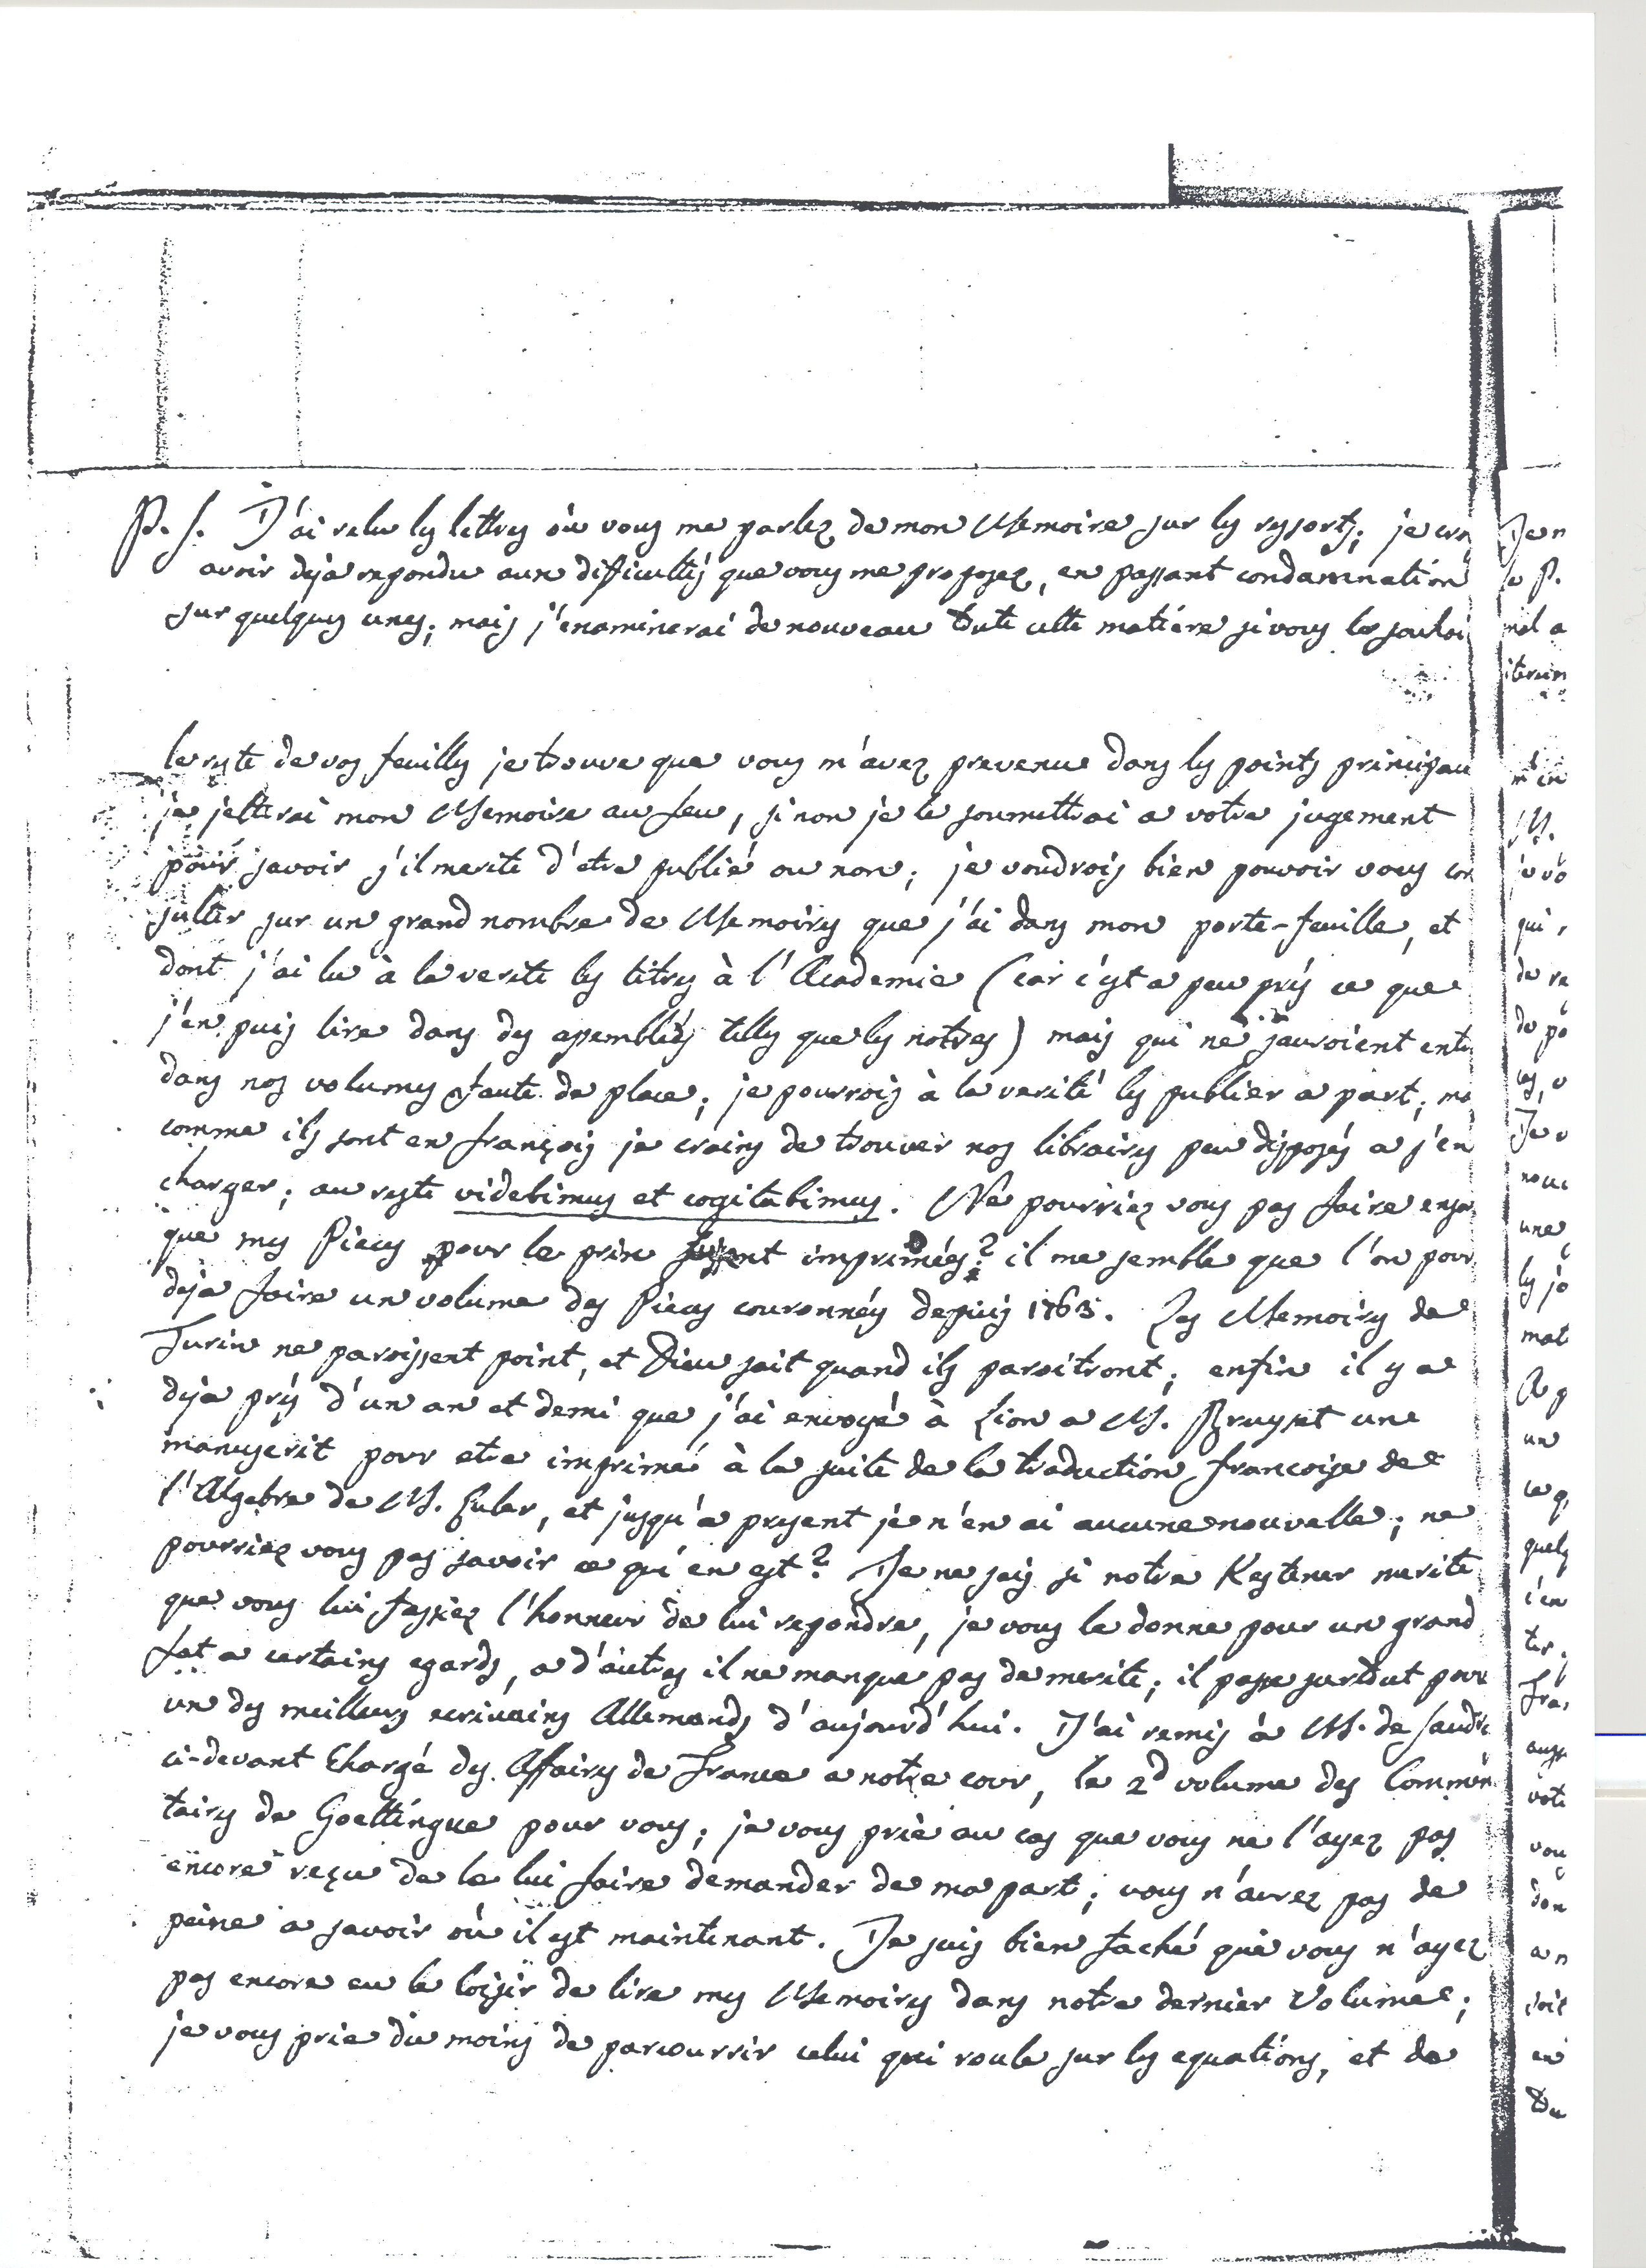 P. S. J'ai relu les lettres où vous me parlez de mon Memoire sur les ressorts; je cro
avoir deja repondu aux difficultés que vous me proposez, en passant condamnation
sur quelques unes; mais j'examinerai de nouveau toute cette matière si vous le souhai
le reste de vos feuilles je trouve que vous m'avez prevenu dans les points principau
je jetterai mon Memoire au feu, si non je le soumettrai a votre jugement
pour savoir s'il merite d'etre publié ou non; je voudrois bien pouvoir vous con
sulter sur un grand nombre de Memoires que j'ai dans mon porte-feuille, et
dont j'ai lu à la verité les titres à l'Academie (car c'est a peu près ce que
j'en puis lire dans des assemblées telles que les notres) mais qui ne sauroient entr
dans nos volumes faute de place; je pourrois à la verité les publier a part; ma
comme ils sont en françois je crains de trouver nos libraires peu disposés a s'en
charger; au reste videbimus et cogitabimus. Ne pourriez vous pas faire enso
que mes Pieces pour le prix fussent imprimées? il me semble que l'on pour
deja faire un volume des Pieces couronnées depuis 1763. Les Memoires de
Turin ne paroissent point, et Dieu sait quand ils paroitront; enfin il y a
deja près d'un an et demi que j'ai envoyé à Lion a M. Bruyset un
manuscrit pour etre imprimé à la suite de la traduction francoise de
l'Algebre de M. Euler, et jusqu'a present je n'en ai aucune nouvelle; ne
pourriez vous pas savoir ce qui en est? Je ne sais si notre Kestener merite
que vous lui fassiez l'honneur de lui repondre, je vous le donne pour un grand
fat a certains egards, a d'autres il ne manque pas de merite; il passe surtout pour
un des meilleurs ecrivains Allemands d'aujourd'hui. J'ai remis à M. de
ci-devant Chargé des Affaires de France a notre cour, le 2d volume des Commen
taires de Goettingue pour vous; je vous prie au cas que vous ne l'ayez pas
encore reçu de le lui faire demander de ma part; vous n'aurez pas de
peine a savoir où il est maintenant. Je suis bien faché que vous n'ayez
pas encore eu le loisir de lire mes Memoires dans notre dernier Volume;
je vous prie du moins de parcourrir celui qui roule sur les equations, et de